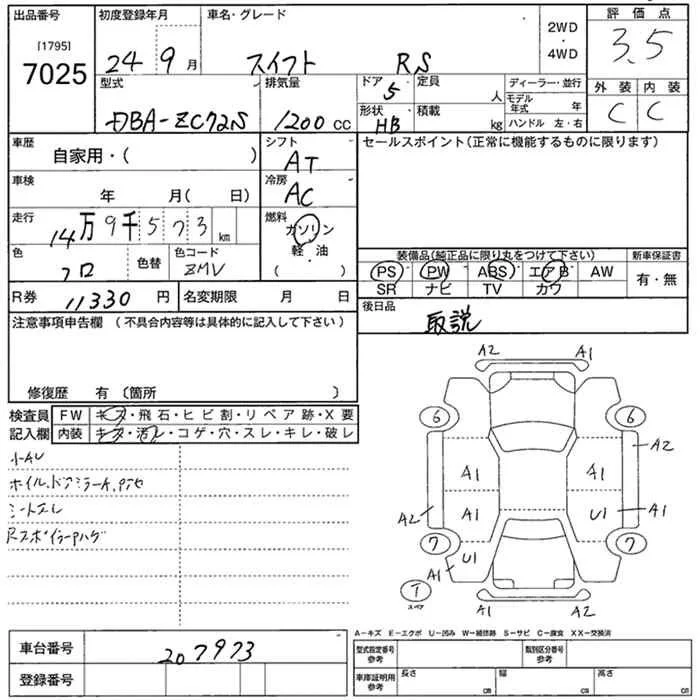 出品番号 初度登録年月 車名・グレード 2WD・4WD 評価点
[1795]
7025 24 9月 スイフト RS 3.5
型式 排気量 ドア 5 定員 人 ディーラー・並行 外装 内装
DBA-ZC72S 1200 cc 形状 HB 積載 kg モデル年式 年 C C
ハンドル 左・右
車歴 シフト セールスポイント(正常に機能するものに限ります)
自家用・( ) AT
車検 冷房
年 月(日) AC
走行 燃料
14万9千573km ガソリン・軽・油
( )
色 色替 色コード 装備品(純正品に限り丸をつけて下さい) 新車保証書
クロ ZMV PS PW ABS エアB AW 有・無
SR ナビ TV カワ
R券 11330 円 名変期限 月 日 後日品
取説
注意事項申告欄 (不具合内容等は具体的に記入して下さい)
修復歴 有 〔箇所 〕
検査員 FW キズ・飛石・ヒビ割・リペア跡・X要
記入欄 内装 キズ・汚レ・コゲ・穴・スレ・キレ・破レ
小AU
シートスレ
A2 A1
6 6
A1 A1 A2
A2 A1 U1 A1
7 7
A1 U1
T
スペア
A1 A2
A-キズ E-エクボ U-凹み W-補修跡 S-サビ C-腐食 XX-交換済
車台番号 207973 型式指定番号 参考 類別区分番号 参考
登録番号 車庫証明用 参考 長さ cm 幅 cm 高さ cm